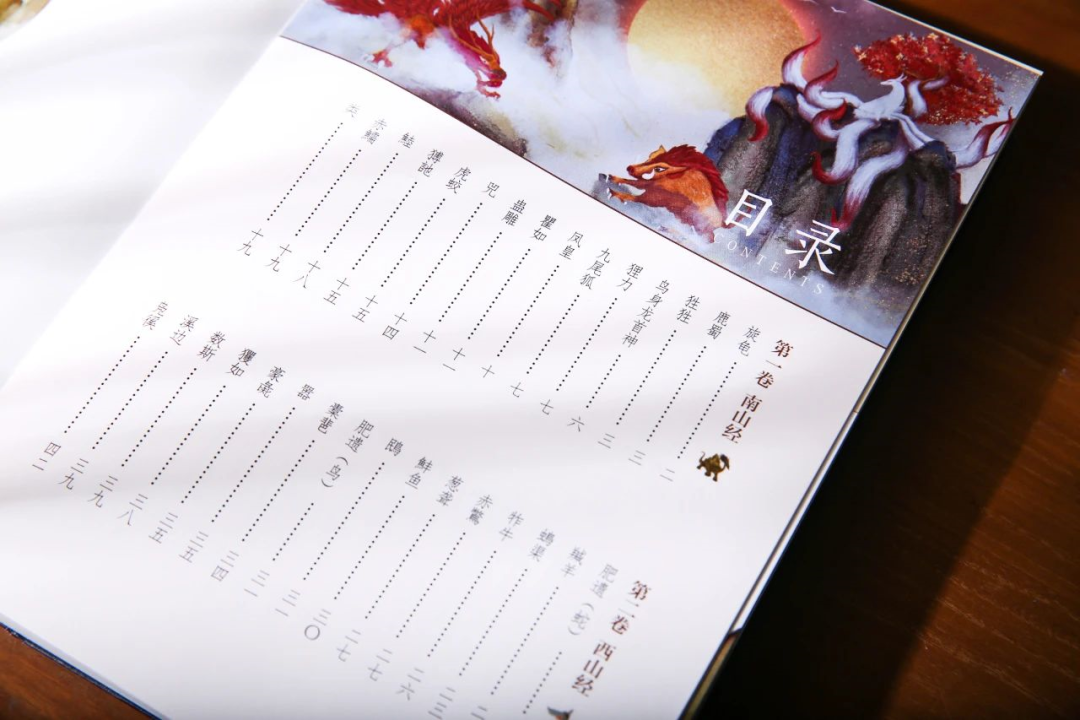 目录
CONTENTS
第一卷 南山经
旋龟 二
鹿蜀 三
狌狌 三
鸟身龙首神 六
狸力 七
九尾狐 七
凤皇 十
瞿如 十一
蛊雕 十二
兕 十四
虎蛟 十五
猼訑 十五
鯥 十八
赤鱬 十九
类 十九
第二卷 西山经
肥遗（蛇）
羬羊
螐渠 二三
㸲牛 二六
赤鷩 二七
葱聋 二七
鲜鱼 三〇
鴖 三一
肥遗（鸟） 三一
橐𩇯 三四
嚣 三五
豪彘 三五
玃如 三八
数斯 三九
溪边 三九
凫徯 四二